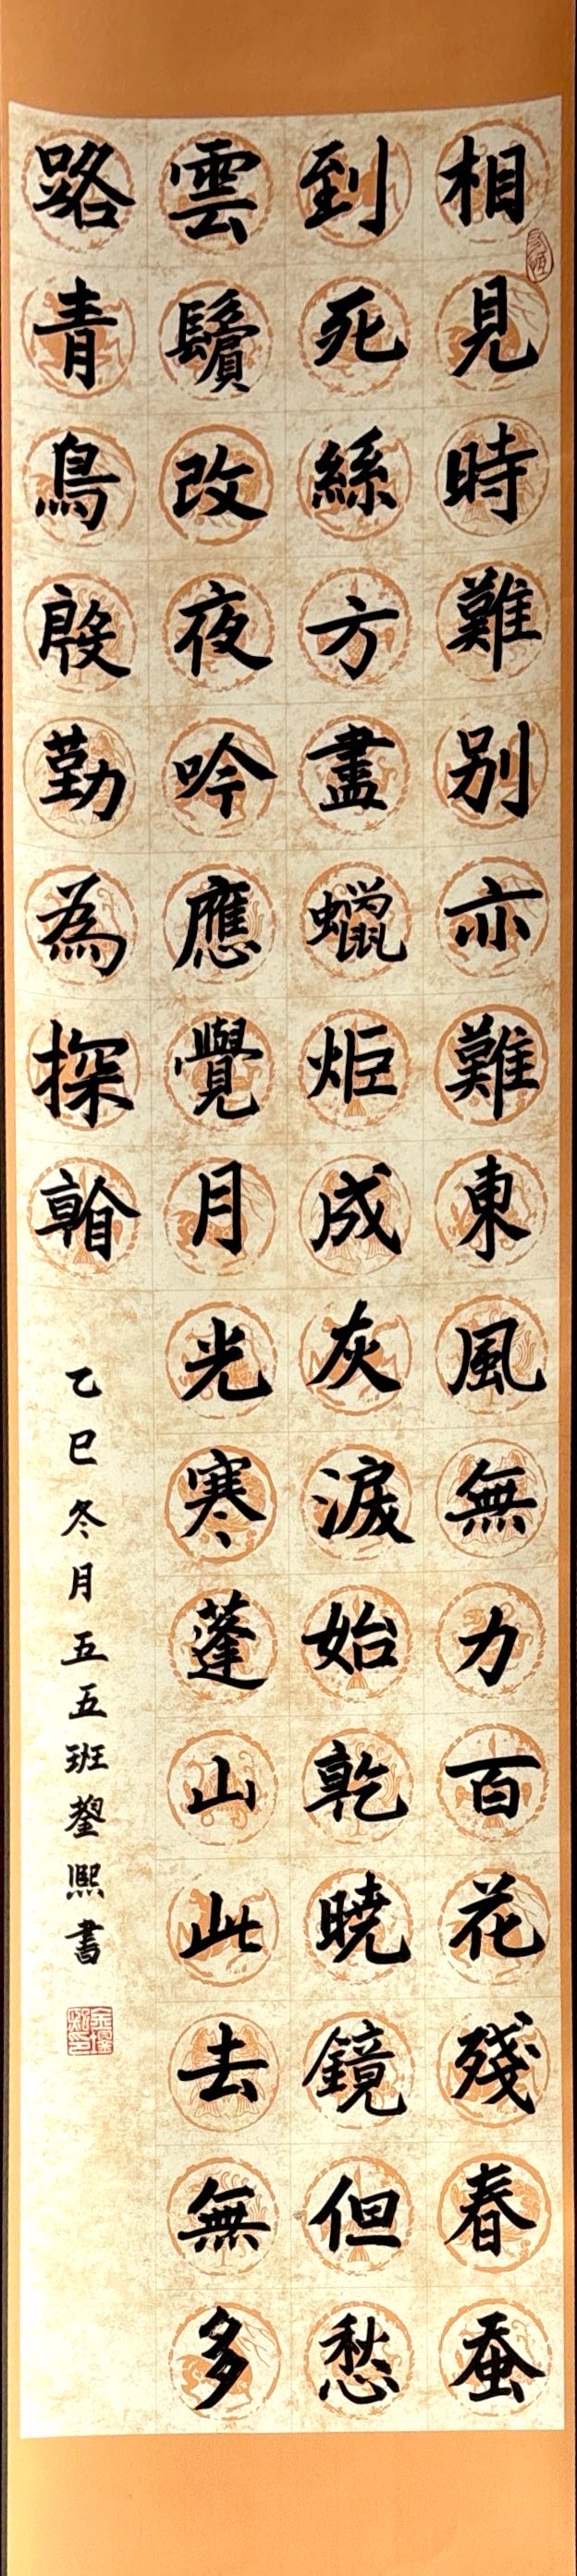 相見時難别亦難東風無力百花殘春蚕
到死絲方盡蠟炬成灰淚始乾曉鏡但愁
雲鬢改夜吟應覺月光寒蓬山此去無多
路青鳥殷勤為探
乙巳冬月五五班熙書